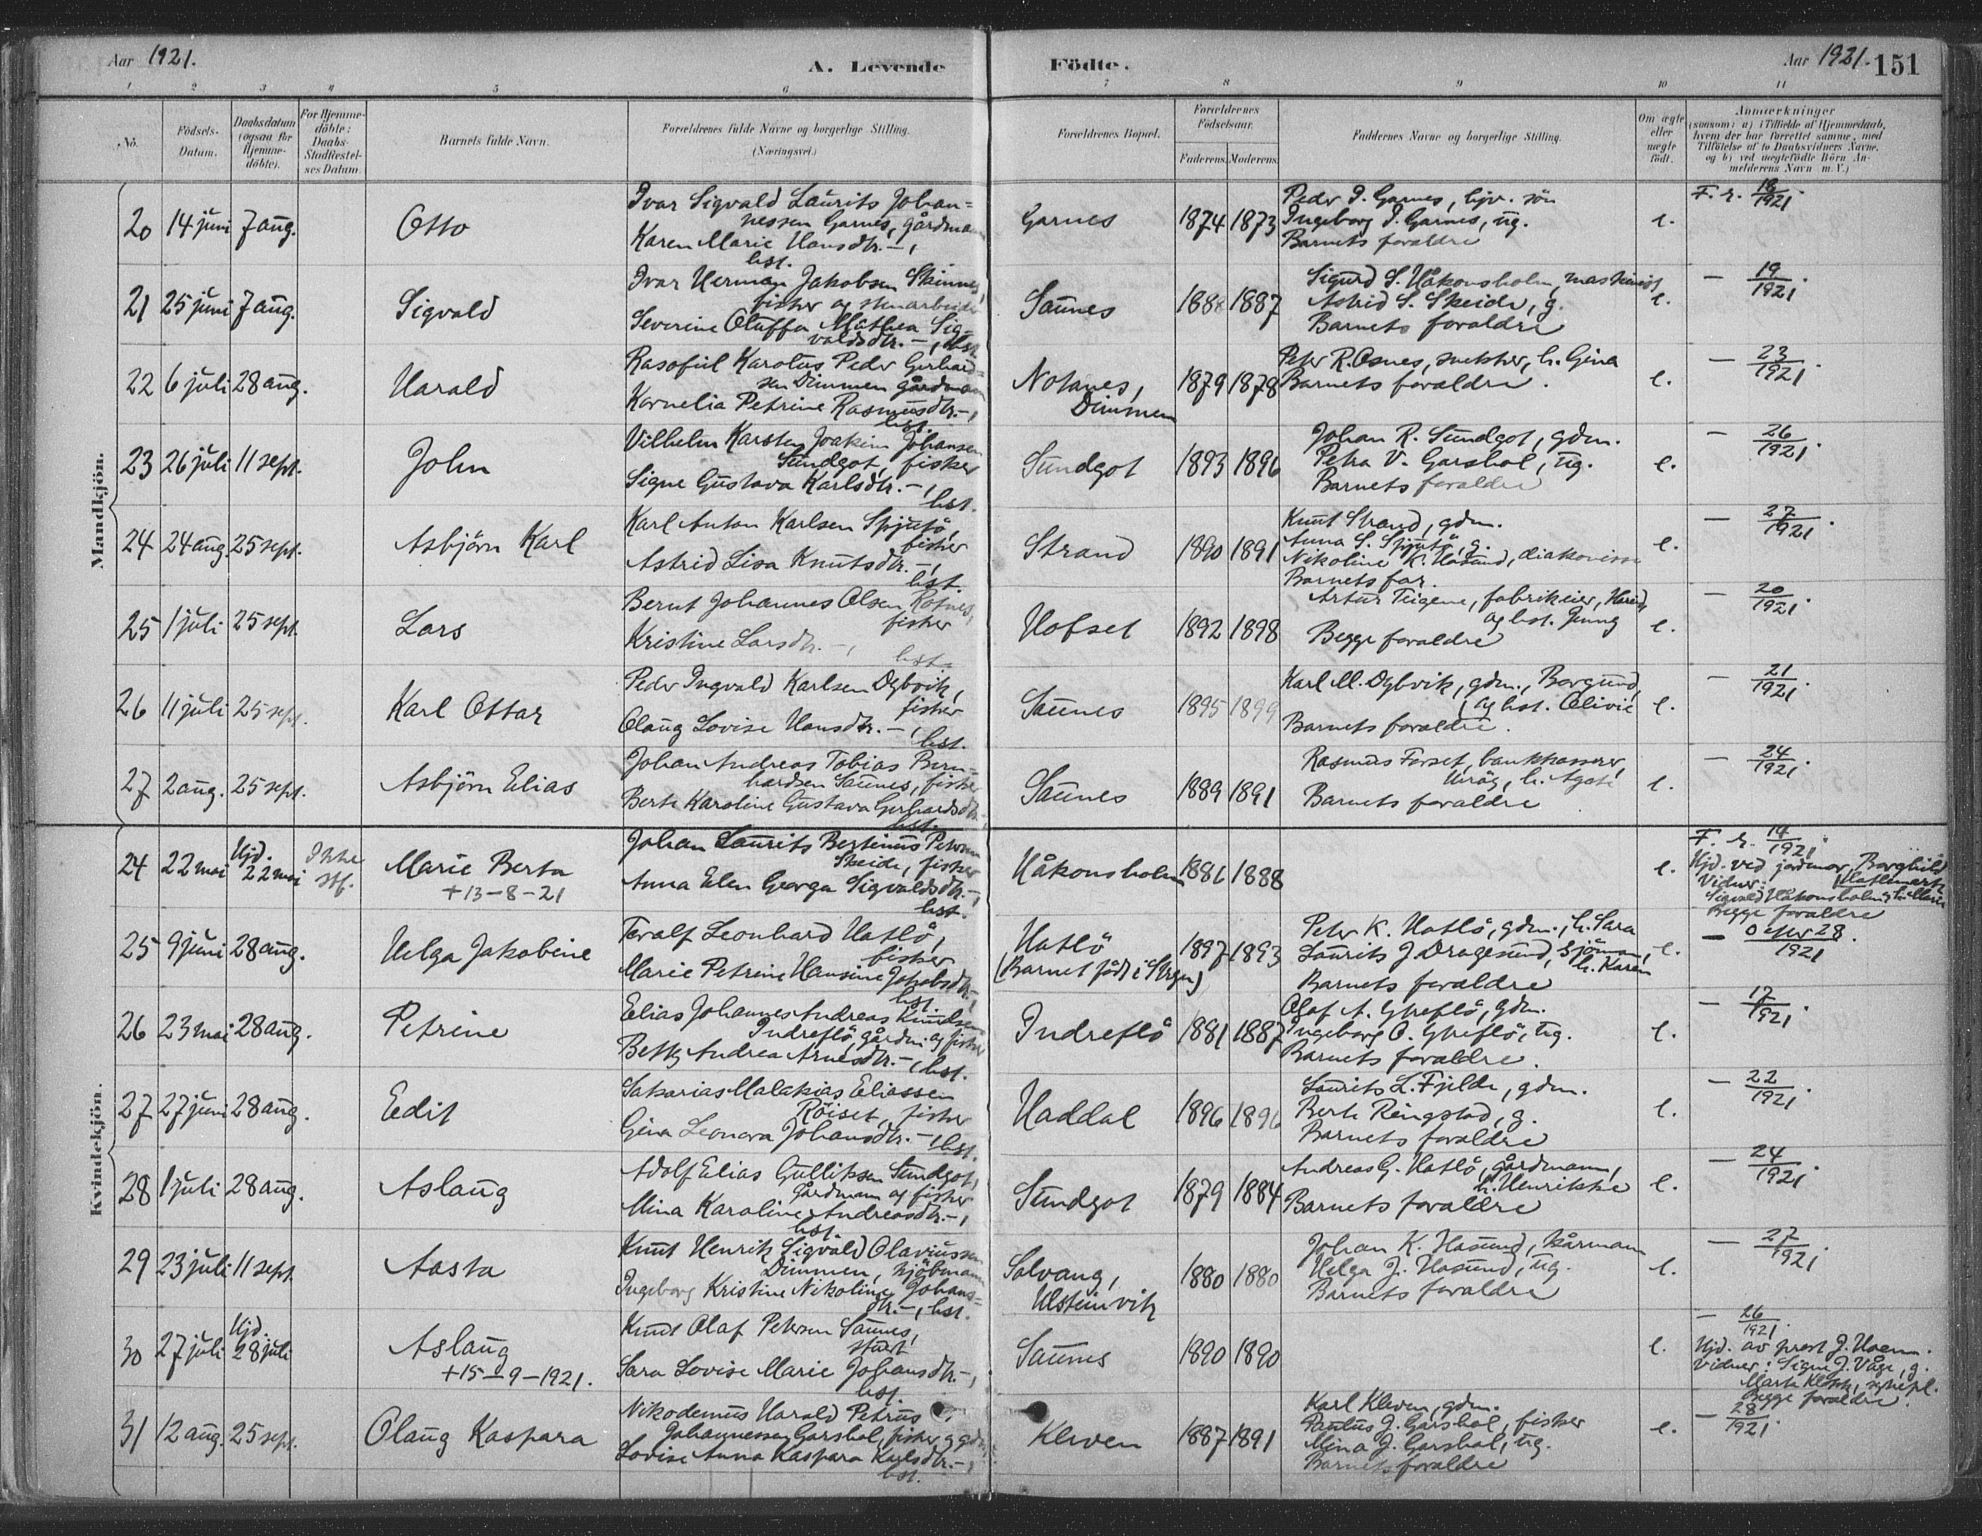 Aar 1921.
A. Levende
Fødte.
Aar 1921.
151
1 2 3 4 5 6 7 8 9 10 11
No.
Födsels-Datum.
Daabsdatum (ogsaa for Hjemme-döbte).
For Hjemme-döbte: Daabs-Stadfæstel-ses Datum.
Barnets fulde Navn.
Forældrenes fulde Navne og borgerlige Stilling.
(Næringsvei.)
Forældrenes Bopæl.
Forældrenes Födselsaar.
Faderens. Moderens.
Faddernes Navne og borgerlige Stilling.
Om ægte eller uægte födt.
Anmærkninger
(saasom: a) i Tilfælde af Hjemmedaab, hvem der har forrettet samme, med Tilföielse af to Daabsvidners Navne, og b) ved uægtefödte Börn An-melderens Navn m. V.)
Mandkjön.
20 14 juni 7 aug. Otto
Ivar Sigvald Laurits Johan-
nessen Garnes, gårdmann
Karen Marie Hansdtr. –,
hst.
Garnes 1874 1873
Peder I. Garnes, hjv. sön
Ingeborg I. Garnes, ug.
Barnets foraldre
e. F. r. 18/1921.
21 25 juni 7 aug. Sigvald
Ivar Herman Jakobsen Skinnes,
fisker og stenarbeider
Severine Oluffa Mathea Sig-
valdsdtr. –, hst.
Saunes 1888 1887
Sigurd S. Håkonsholm, maskinist
Astrid S. Skeide, g.
Barnets foraldre
e. – 19/1921.
22 6 juli 28 aug. Harald
Karolus Peder Gerhard-
sen Dimmen gårdmann
Kornelia Petrine Rasmusdtr. –,
hst.
Notanes,
Dimmen
1879 1878
Peter R. Osnes, snekker, h. Gina
Barnets foraldre.
e. – 23/1921.
23 26 juli 11 sept. John
Vilhelm Karsten Joakim Johansen
Sundgot, fisker
Signe Gustava Karlsdtr. –,
hst.
Sundgot 1893 1896
Johan R. Sundgot, gdm.
Petra V. Garshol, ug.
Barnets foraldre
e. – 26/1921.
24 24 aug. 25 sept. Asbjörn Karl
Karl Anton Karlsen Spjutö,
fisker
Astrid Lisa Knutsdtr. –,
hst.
Strand 1890 1891
Knut Strand, gdm.
Anna S. Spjutö, g.
Nikoline K. Hasund, diakonisse
Barnets far.
e. – 27/1921.
25 1 juli 25 sept. Lars
Bernt Johannes Olsen Rotnes,
fisker
Kristine Larsdtr. –,
hst.
Hofset 1892 1898
Artur Teigene, fabrikeier, Hareid,
og hst. Jenny
Begge foraldre
e. – 20/1921.
26 11 juli 25 sept. Karl Ottar
Peder Ingvald Karlsen Dybvik,
fisker
Olaug Lovise Hansdtr. –,
hst.
Saunes 1895 1899
Karl M. Dybvik, gdm., Borgund,
og hst. Olivie
Barnets foraldre.
e. – 21/1921.
27 2 aug. 25 sept. Asbjörn Elias
Johan Andreas Tobias Bern-
hardsen Saunes, fisker
Berte Karoline Gustava Gerhardsdtr. –,
hst.
Saunes 1889 1891
Rasmus Forset, bankkasserer,
h. Agate
Barnets foraldre
e. – 24/1921.
Kvindekjön.
24 22 mai Hjd. 22 mai Ikke stf. Marie Berta
+ 13 – 8 – 21
Johan Laurits Bertinus Petersen
Skeide, fisker
Anna Elen Georga Sigvaldsdtr. –,
hst.
Håkonsholm 1886 1888
e. F. r. 14/1921.
Hjd. ved jordmor Borghild
Vidner:
Sigvald Håkonsholm
Begge foraldre
25 9 juni 28 aug. Helga Jakobine
Toralf Leonhard Hatlö,
fisker
Marie Petrine Hansine Jakobsdtr. –,
hst.
Hatlö
(Barnet födt i)
1897 1893
Peter K. Hatlö, gdm., h. Sara
Laurits J. Dragesund, sjöman,
h. Karen
Barnets foraldre
e. – 28/1921.
26 23 mai 28 aug. Petrine
Elias Johannes Andreas Knudsen
Indreflö, gårdm. og fisker
Betty Andrea Arnesdtr. –, hst.
Indreflö 1881 1887
Olaf A. Ytreflö, gdm.
Ingeborg O. Ytreflö, ug.
Barnets foraldre.
e. – 17/1921.
27 27 juni 28 aug. Edit
Sakarias Malakias Eliassen
Röiset, fisker
Gina Leonora Johansdtr. –, hst.
Haddal 1896 1896
Laurits L. Fjelde, gdm.
Berte Ringstad, g.
Barnets foraldre
e. – 22/1921.
28 1 juli 28 aug. Aslaug
Adolf Elias Gulliksen Sundgot,
gårdmann og fisker
Mina Karoline Andreasdtr. –,
hst.
Sundgot 1879 1884
Andreas G. Hatlö, gårdmann,
h. Henrikke
Barnets foraldre
e. – 24/1921.
29 23 juli 11 sept. Aasta
Knut Henrik Sigvald Olaviussen
Dimmen, kjöbmann
Ingeborg Kristine Nikoline Johans-
dtr. –, hst.
Solvang,
Ulsteinvik
1880 1880
Johan K. Hasund, kårmann
Helga J. Hasund, ug.
Barnets foraldre
e. – 27/1921.
30 27 juli Hjd. 28 juli Aslaug
+ 15 – 9 – 1921.
Knut Olaf Petersen Saunes,
Sara Lovise Marie Johansdtr. –,
hst.
Saunes 1890 1890
e. – 26/1921.
Hjd. av prest J. Hoem.
Vidner: Signe J. Våge, g.
Marta Klokk, sykepl.
Begge foraldre.
31 12 aug. 25 sept. Olaug Kaspara
Nikodemus Harald Petrus
Johannessen Garshol, fisker og gdm.
Lovise Anna Kaspara Karlsdtr. –,
hst.
Kleven 1887 1891
Karl Kleven, gdm.
Paulus J. Garshol, fisker
Mina J. Garshol, ug.
Barnets foraldre
e. – 28/1921.